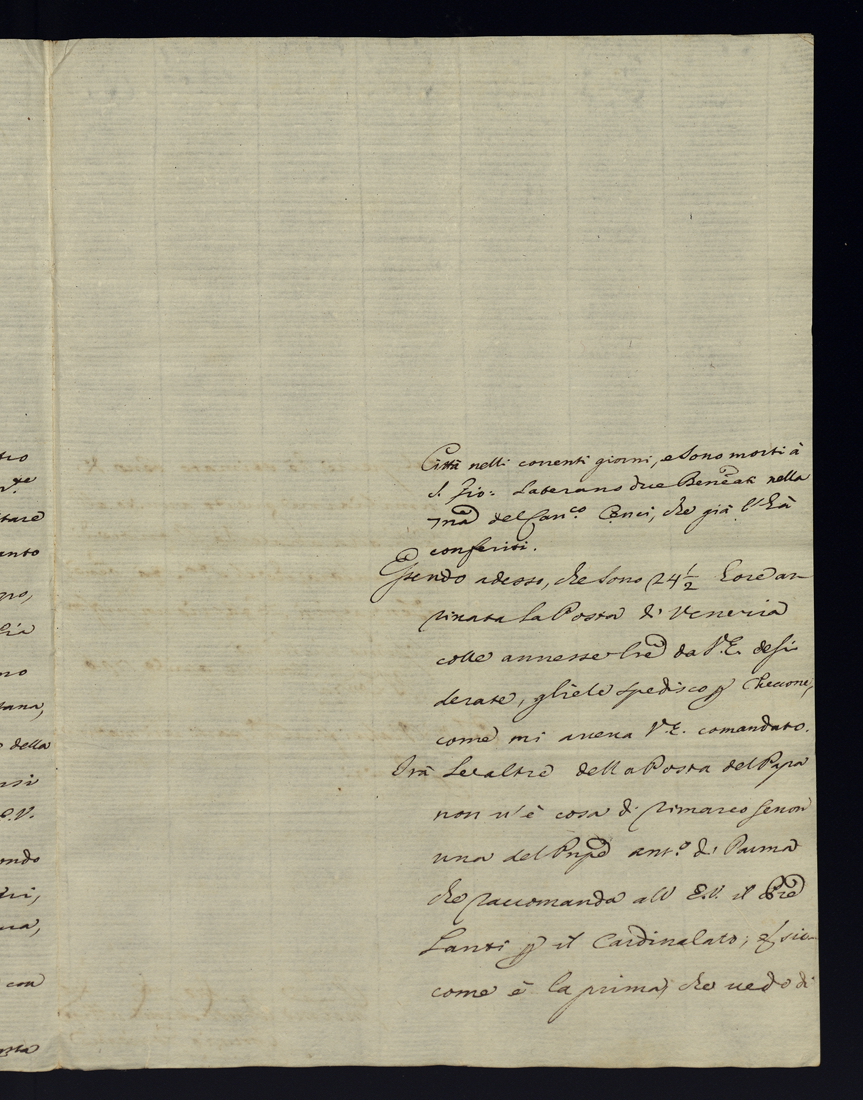 tro
V.re
tare
anto
gno,
lia
no
tana,
o della
nsi
E.V.
ondo
dri,
ua,
con
Città nelli correnti giorni, e sono morti à
S. Gio: Laterano due Beneati nella
del Canco. Cenci, che già l'hà
conferiti.
Essendo adesso, che sono 24½ hore ar-
rivata la Posta di Venezia
colle annesse lre da V.E. desi
derate, gliele spedisco p Checcone,
come mi aveva V.E. comandato.
Trà le altre della Posta del Papa
non v'è cosa di rimarco senon
una del Pnpe anto. di Parma
che raccomanda all' E.V. il Pre
Lanti p il Cardinalato; e sic-
come è la prima, che vedo di